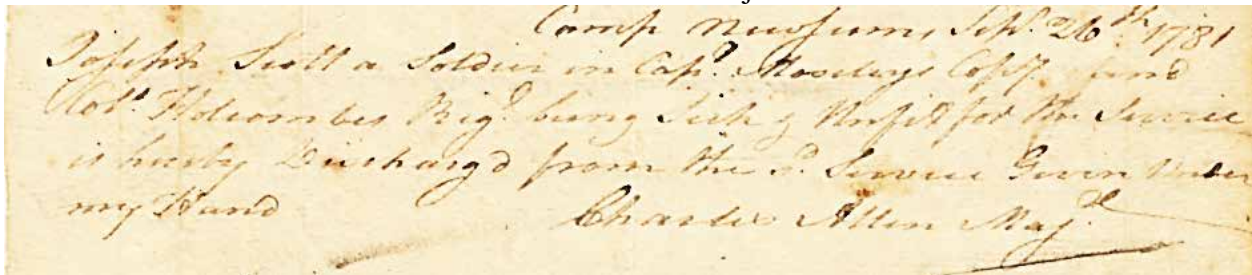 Camp Newsums Sepr. 26th 1781
Joseph Scott a Soldier in Capt. Moseleys Compy and
Colo. Holcombes Regt. being Sick & Unfit for the Service
is hereby Discharg'd from the sd. Service Given Under
my Hand Charles Allen Majr.